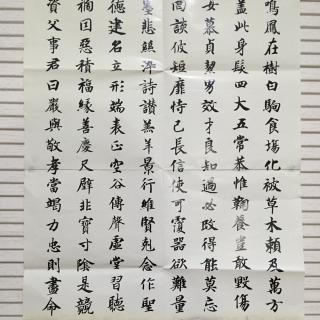 鳴鳳在樹白駒食場化被草木賴及萬方
蓋此身髮四大五常恭惟鞠養豈敢毀傷
女慕貞絜男效才良知過必改得能莫忘
罔談彼短靡恃己長信使可覆器欲難量
墨悲絲染詩讚羔羊景行維賢剋念作聖
德建名立形端表正空谷傳聲虛堂習聽
禍因惡積福緣善慶尺璧非寶寸陰是競
資父事君曰嚴與敬孝當竭力忠則盡命